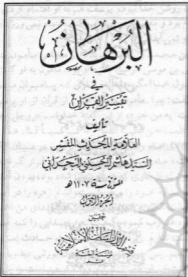 البرهان
في
تفسير القرآن
تأليف
العلامة المحدث المفسر
السيد هاشم الحسيني البحراني
المتوفى سنة ١١٠٧ هـ
الجزء الأول
تحقيق
قسم الدراسات الإسلامية